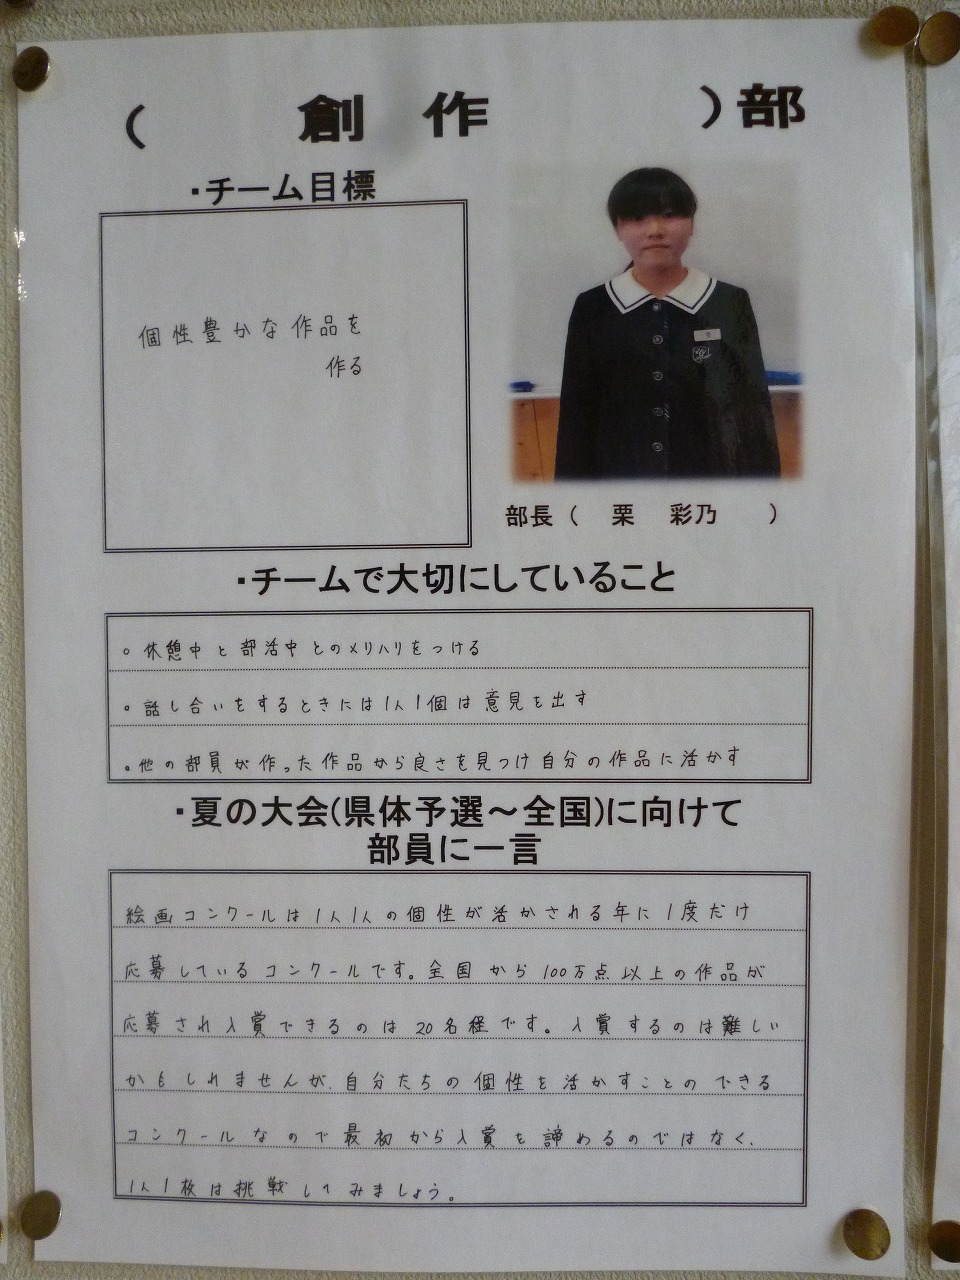 ( 創 作 )部
・チーム目標
個性豊かな作品を
作る
部長 ( 栗 彩乃 )
・チームで大切にしていること
。休憩中と部活中とのメリハリをつける
。話し合いをするときには1人1個は意見を出す
。他の部員が作った作品から良さを見つけ自分の作品に活かす
・夏の大会(県体予選～全国)に向けて
部員に一言
絵画コンクールは1人1人の個性が活かされる年に1度だけ
応募しているコンクールです。全国から100万点以上の作品が
応募され入賞できるのは20名程です。入賞するのは難しい
かもしれませんが、自分たちの個性を活かすことのできる
コンクールなので最初から入賞を諦めるのではなく、
1人1枚は挑戦してみましょう。